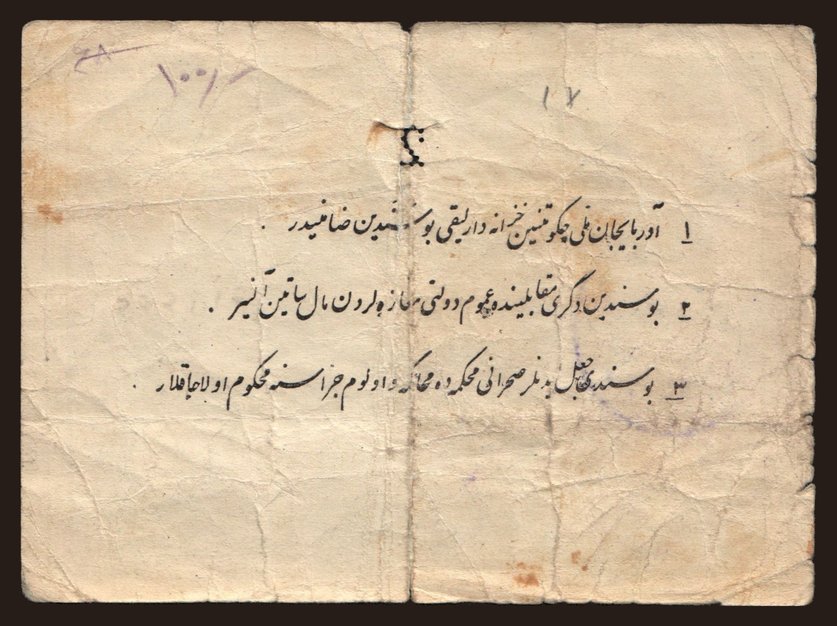 ۱۷
۱۰۰/
۱ آذربایجان ملی حکومتنین خزانه دارلیقی بو سندین ضامنیدر .
۲ بو سندین دگری مقابلینده عموم دولتی مغازه لردن مال ساتین آلنیر .
۳ بو سندی جعل ایدنلر صحرائی محکمه ده محاکمه و اولوم جزاسنه محکوم اولاجاقلار .